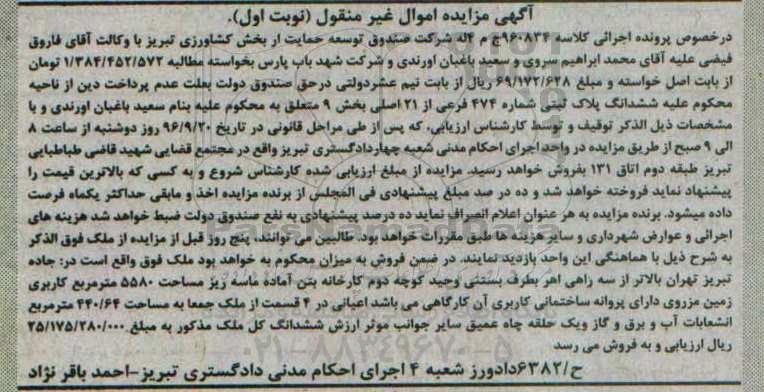 آگهی مزایده اموال غیر منقول (نوبت اول).
درخصوص پرونده اجرائی کلاسه ۹۶۰۸۳۴ج م ۴له شرکت صندوق توسعه حمایت از بخش کشاورزی تبریز با وکالت آقای فاروق
فیضی علیه آقای محمد ابراهیم سروی و سعید باغبان اورندی و شرکت شهد باب پارس بخواسته مطالبه ۱/۳۸۴/۴۵۲/۵۷۲ تومان
از بابت اصل خواسته و مبلغ ۶۹/۱۷۲/۶۲۸ ریال از بابت نیم عشردولتی درحق صندوق دولت بعلت عدم پرداخت دین از ناحیه
محکوم علیه ششدانگ پلاک ثبتی شماره ۴۷۴ فرعی از ۲۱ اصلی بخش ۹ متعلق به محکوم علیه بنام سعید باغبان اورندی و با
مشخصات ذیل الذکر توقیف و توسط کارشناس ارزیابی، که پس از طی مراحل قانونی در تاریخ ۹۶/۹/۲۰ روز دوشنبه از ساعت ۸
الی ۹ صبح از طریق مزایده در واحد اجرای احکام مدنی شعبه چهاردادگستری تبریز واقع در مجتمع قضایی شهید قاضی طباطبایی
تبریز طبقه دوم اتاق ۱۳۱ بفروش خواهد رسید. مزایده از مبلغ ارزیابی شده کارشناس شروع و به کسی که بالاترین قیمت را
پیشنهاد نماید فروخته خواهد شد و ده در صد مبلغ پیشنهادی فی المجلس از برنده مزایده اخذ و مابقی حداکثر یکماه فرصت
داده میشود. برنده مزایده به هر عنوان اعلام انصراف نماید ده درصد پیشنهادی به نفع صندوق دولت ضبط خواهد شد هزینه های
اجرائی و عوارض شهرداری و سایر هزینه ها طبق مقررات خواهد بود. طالبین می توانند، پنج روز قبل از مزایده از ملک فوق الذکر
به شرح ذیل با هماهنگی این واحد بازدید نمایند. در ضمن فروش به میزان محکوم به خواهد بود ملک فوق واقع است در: جاده
تبریز تهران بالاتر از سه راهی اهر بطرف بستنی وحید کوچه دوم کارخانه بتن آماده ماسه زیز مساحت ۵۵۸۰ مترمربع کاربری
زمین مزروی دارای پروانه ساختمانی کاربری آن کارگاهی می باشد اعیانی در ۴ قسمت از ملک جمعا به مساحت ۴۴۰/۶۴ مترمربع
انشعابات آب و برق و گاز ویک حلقه چاه عمیق سایر جوانب موثر ارزش ششدانگ کل ملک مذکور به مبلغ ۲۵/۱۷۵/۲۸۰/۰۰۰
ریال ارزیابی و به فروش می رسد
ح/۶۳۸۲دادورز شعبه ۴ اجرای احکام مدنی دادگستری تبریز-احمد باقر نژاد
ParsNamadData
۰۲۱-۸۸۳۴۹۶۷۰-۵